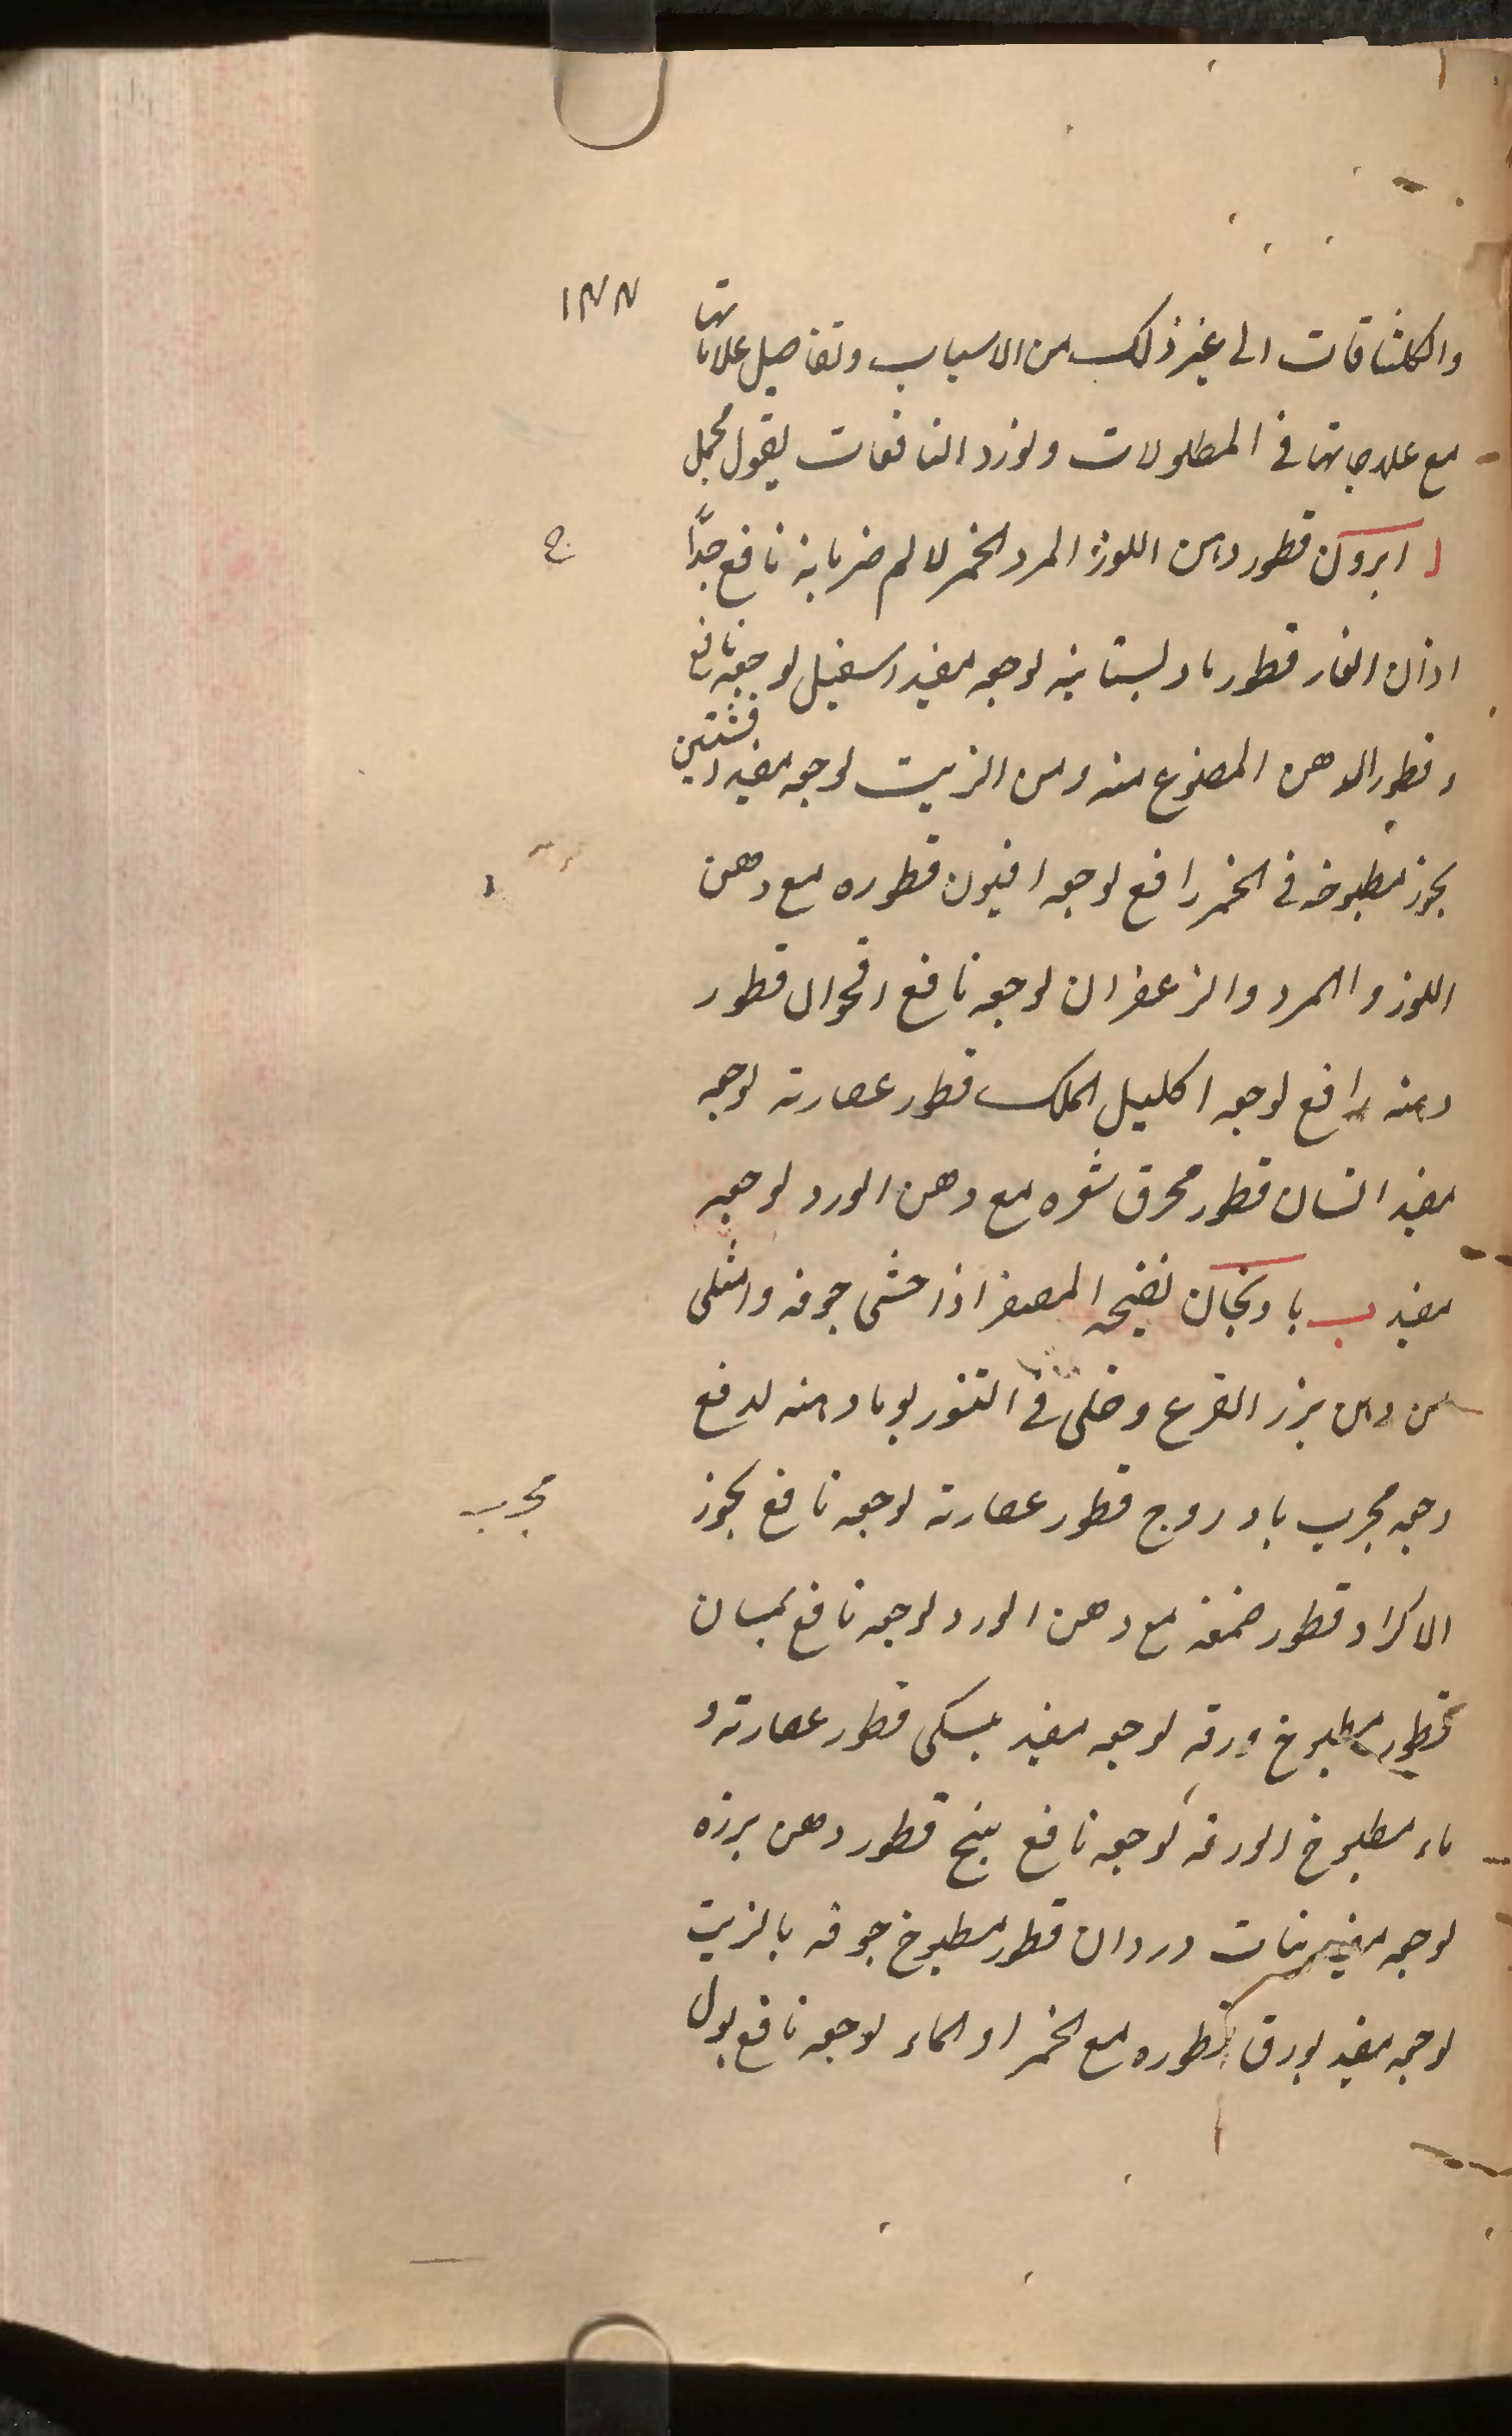 ١٣٣
والكلشاقات الى غير ذلك من الاسباب وتفاصيل علاماتها
مع علاجاتها فى المطولات ونورد النافعات بقول مجمل
ا ابرون قطور دهن اللوز المر والخمر لالم ضربانه نافع جدًّا
ج
اذان الفار قطور ماء بستانيه لوجعه مفيد اسفيل لوجعه نافع
وقطور الدهن المصنوع منه ومن الزيت لوجعه مفيد افسنتين
بخور مطبوخه فى الخمر رافع لوجعه افيون قطوره مع دهن
اللوز والمر والزعفران لوجعه نافع اقحوان قطور
دهنه رافع لوجعه اكليل الملك قطور عصارته لوجعه
مفيد انسان قطور محرق شعره مع دهن الورد لوجعه
مفيد ب بادنجان نضيجه المصفر اذا حشى جوفه وامتلى
من دهن بزر القرع وخلى فى التنور يوما دهنه لدفع
وجعه مجرب بادروج قطور عصارته لوجعه نافع بخور
مجرب
الاكراد قطور صمغه مع دهن الورد لوجعه نافع بلسان
قطور مطبوخ ورقه لوجعه مفيد بلسكى قطور عصارته و
ماء مطبوخ الورقه لوجعه نافع بنج قطور دهن بزره
لوجعه مفيد بنات وردان قطور مطبوخ جوفه بالزيت
لوجعه مفيد بورق قطوره مع الخمر او الماء لوجعه نافع بول